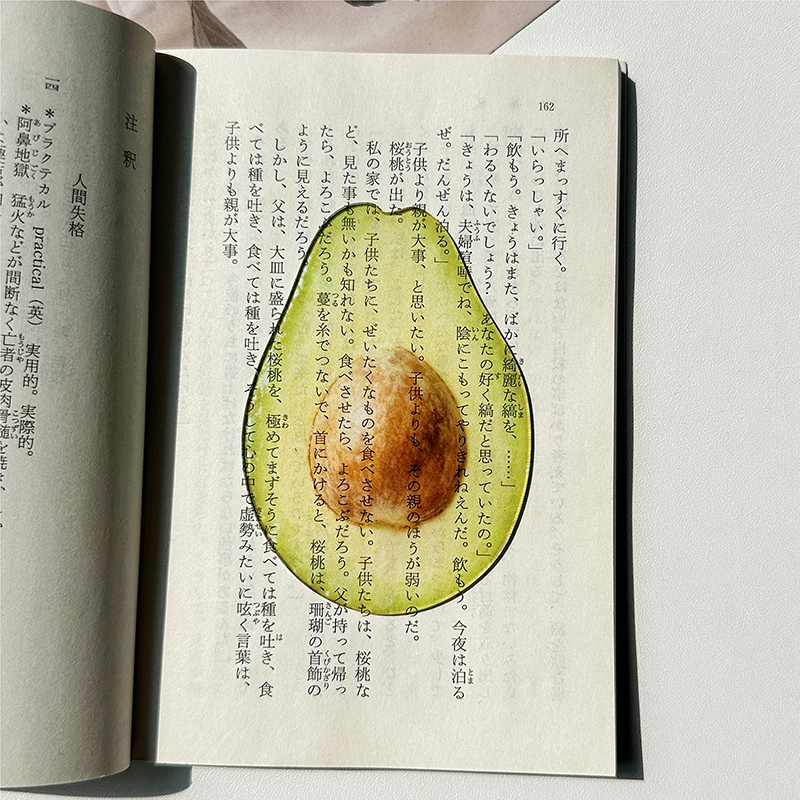 162
所へまっすぐに行く。
「いらっしゃい。」
「飲もう。きょうはまた、ばかに綺麗な縞を、……」
「わるくないでしょう？　あなたの好く縞だと思っていたの。」
「きょうは、夫婦喧嘩でね、陰にこもってやりきれねえんだ。飲もう。今夜は泊る
ぜ。だんぜん泊る。」
子供より親が大事、と思いたい。子供よりも、その親のほうが弱いのだ。
桜桃が出た。
私の家では、子供たちに、ぜいたくなものを食べさせない。子供たちは、桜桃な
ど、見た事も無いかも知れない。食べさせたら、よろこぶだろう。父が持って帰っ
たら、よろこぶだろう。蔓を糸でつないで、首にかけると、桜桃は、珊瑚の首飾の
ように見えるだろう。
しかし、父は、大皿に盛られた桜桃を、極めてまずそうに食べては種を吐き、食
べては種を吐き、食べては種を吐き、そうして心の中で虚勢みたいに呟く言葉は、
子供よりも親が大事。
注釈
人間失格
一四 ＊プラクテカル practical（英） 実用的。実際的。
＊阿鼻地獄 猛火などが間断なく亡者の皮肉骨随を焼き、